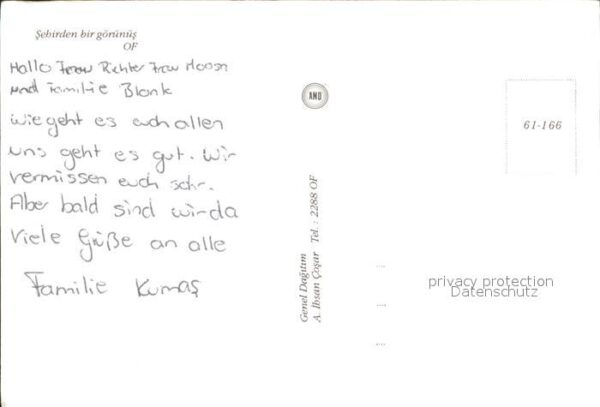 Şehirden bir görünüş
OF
Hallo Frau Richter Frau Moosn
und Familie Blank
wie geht es euch allen
uns geht es gut. Wir
vermissen euch sehr.
Aber bald sind wir da
Viele Grüße an alle
Familie Kumaş
AND
61-166
Genel Dağıtım
A. İhsan Çoşar Tel. : 2288 OF
privacy protection
Datenschutz